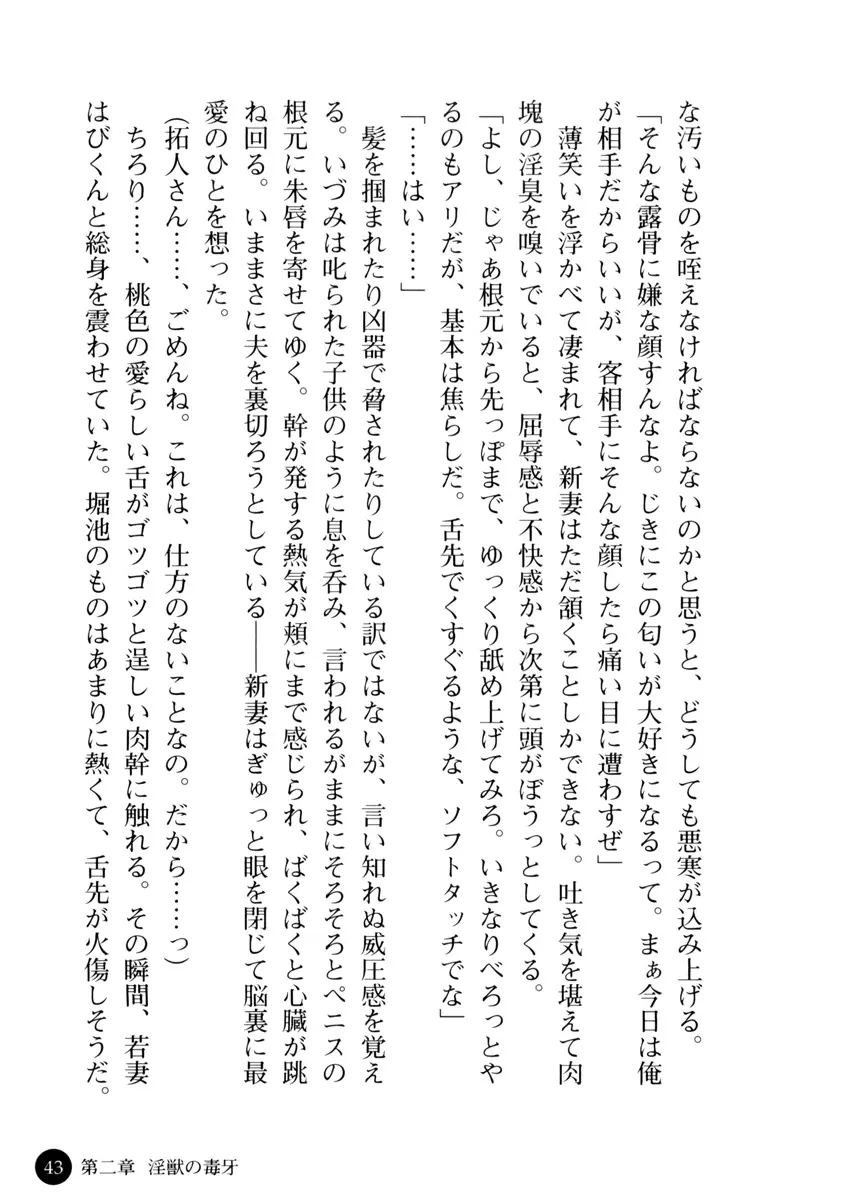 な汚いものを咥えなければならないのかと思うと、どうしても悪寒が込み上げる。
「そんな露骨に嫌な顔すんなよ。じきにこの匂いが大好きになるって。まぁ今日は俺
が相手だからいいが、客相手にそんな顔したら痛い目に遭わすぜ」
薄笑いを浮かべて凄まれて、新妻はただ頷くことしかできない。吐き気を堪えて肉
塊の淫臭を嗅いでいると、屈辱感と不快感から次第に頭がぼうっとしてくる。
「よし、じゃあ根元から先っぽまで、ゆっくり舐め上げてみろ。いきなりべろっとや
るのもアリだが、基本は焦らしだ。舌先でくすぐるような、ソフトタッチでな」
「……はい……」
髪を掴まれたり凶器で脅されたりしている訳ではないが、言い知れぬ威圧感を覚え
る。いづみは叱られた子供のように息を呑み、言われるがままにそろそろとペニスの
根元に朱唇を寄せてゆく。幹が発する熱気が頬にまで感じられ、ばくばくと心臓が跳
ね回る。いままさに夫を裏切ろうとしている――新妻はぎゅっと眼を閉じて脳裏に最
愛のひとを想った。
（拓人さん……、ごめんね。これは、仕方のないことなの。だから……っ）
ちろり……、桃色の愛らしい舌がゴツゴツと逞しい肉幹に触れる。その瞬間、若妻
はびくんと総身を震わせていた。堀池のものはあまりに熱くて、舌先が火傷しそうだ。
43 第二章 淫獣の毒牙